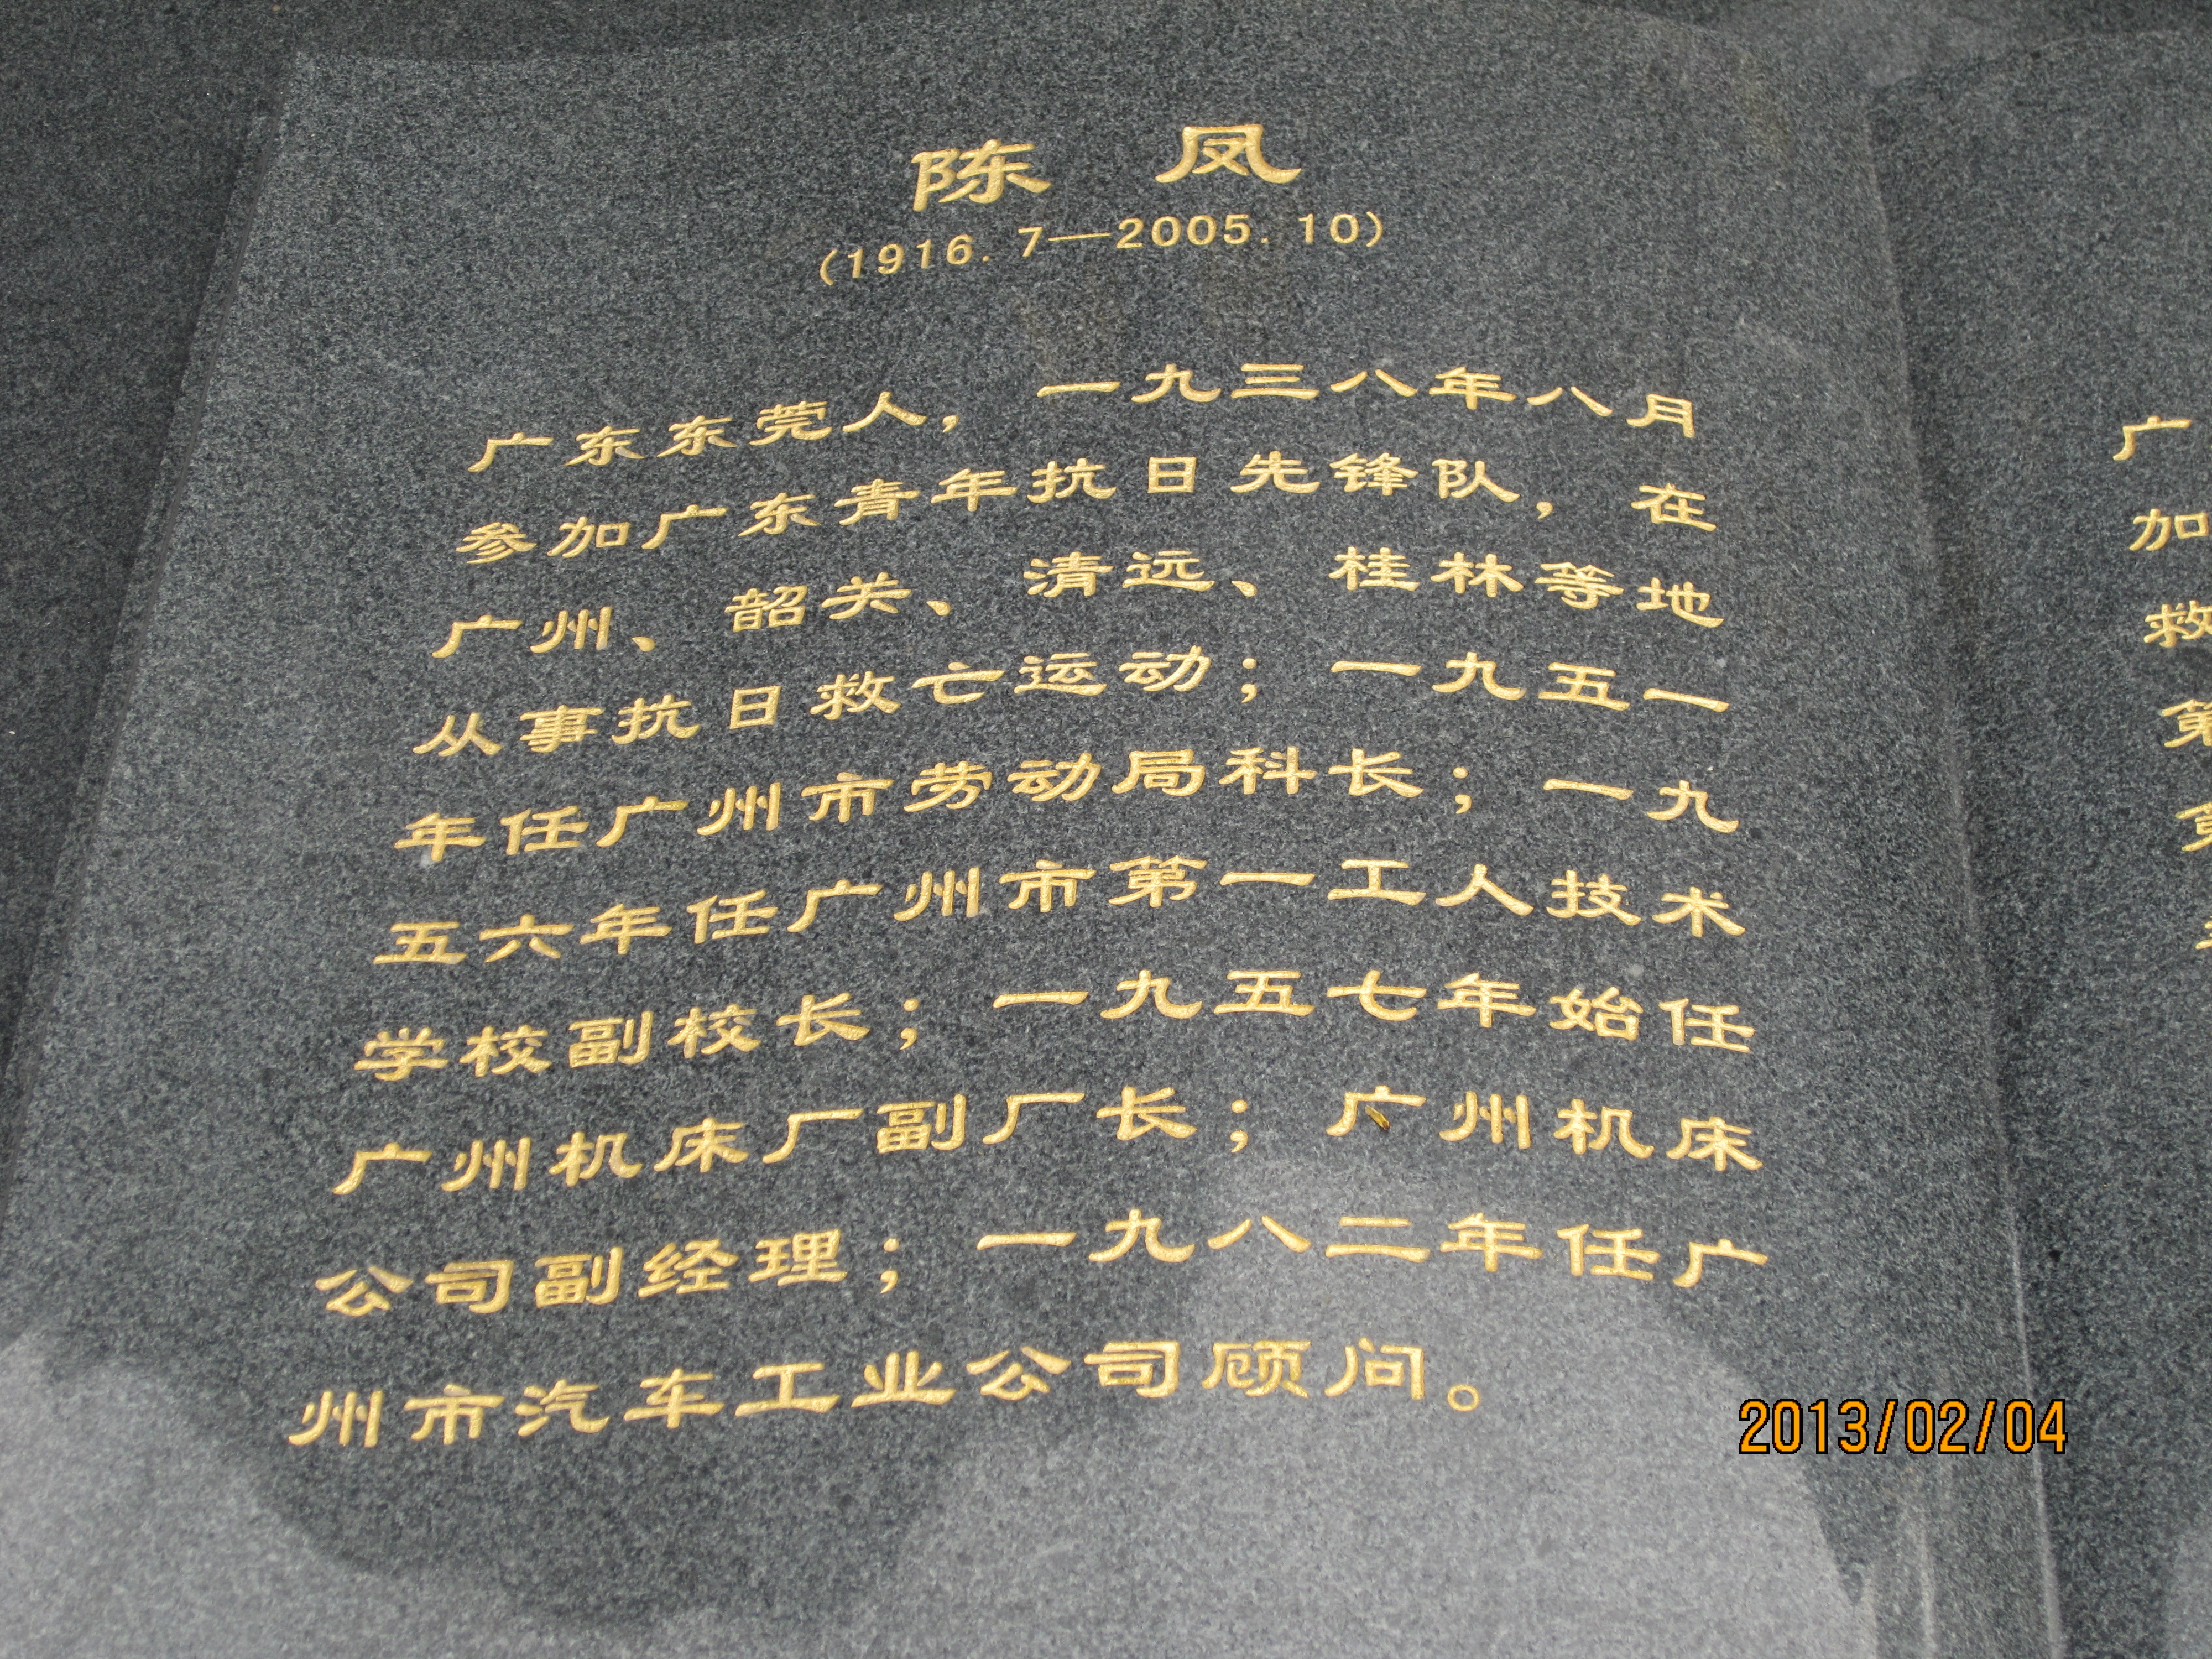 陈 凤
(1916.7—2005.10)
广东东莞人，一九三八年八月
参加广东青年抗日先锋队，在
广州、韶关、清远、桂林等地
从事抗日救亡运动；一九五一
年任广州市劳动局科长；一九
五六年任广州市第一工人技术
学校副校长；一九五七年始任
广州机床厂副厂长；广州机床
公司副经理；一九八二年任广
州市汽车工业公司顾问。
广
加
救
第
2013/02/04